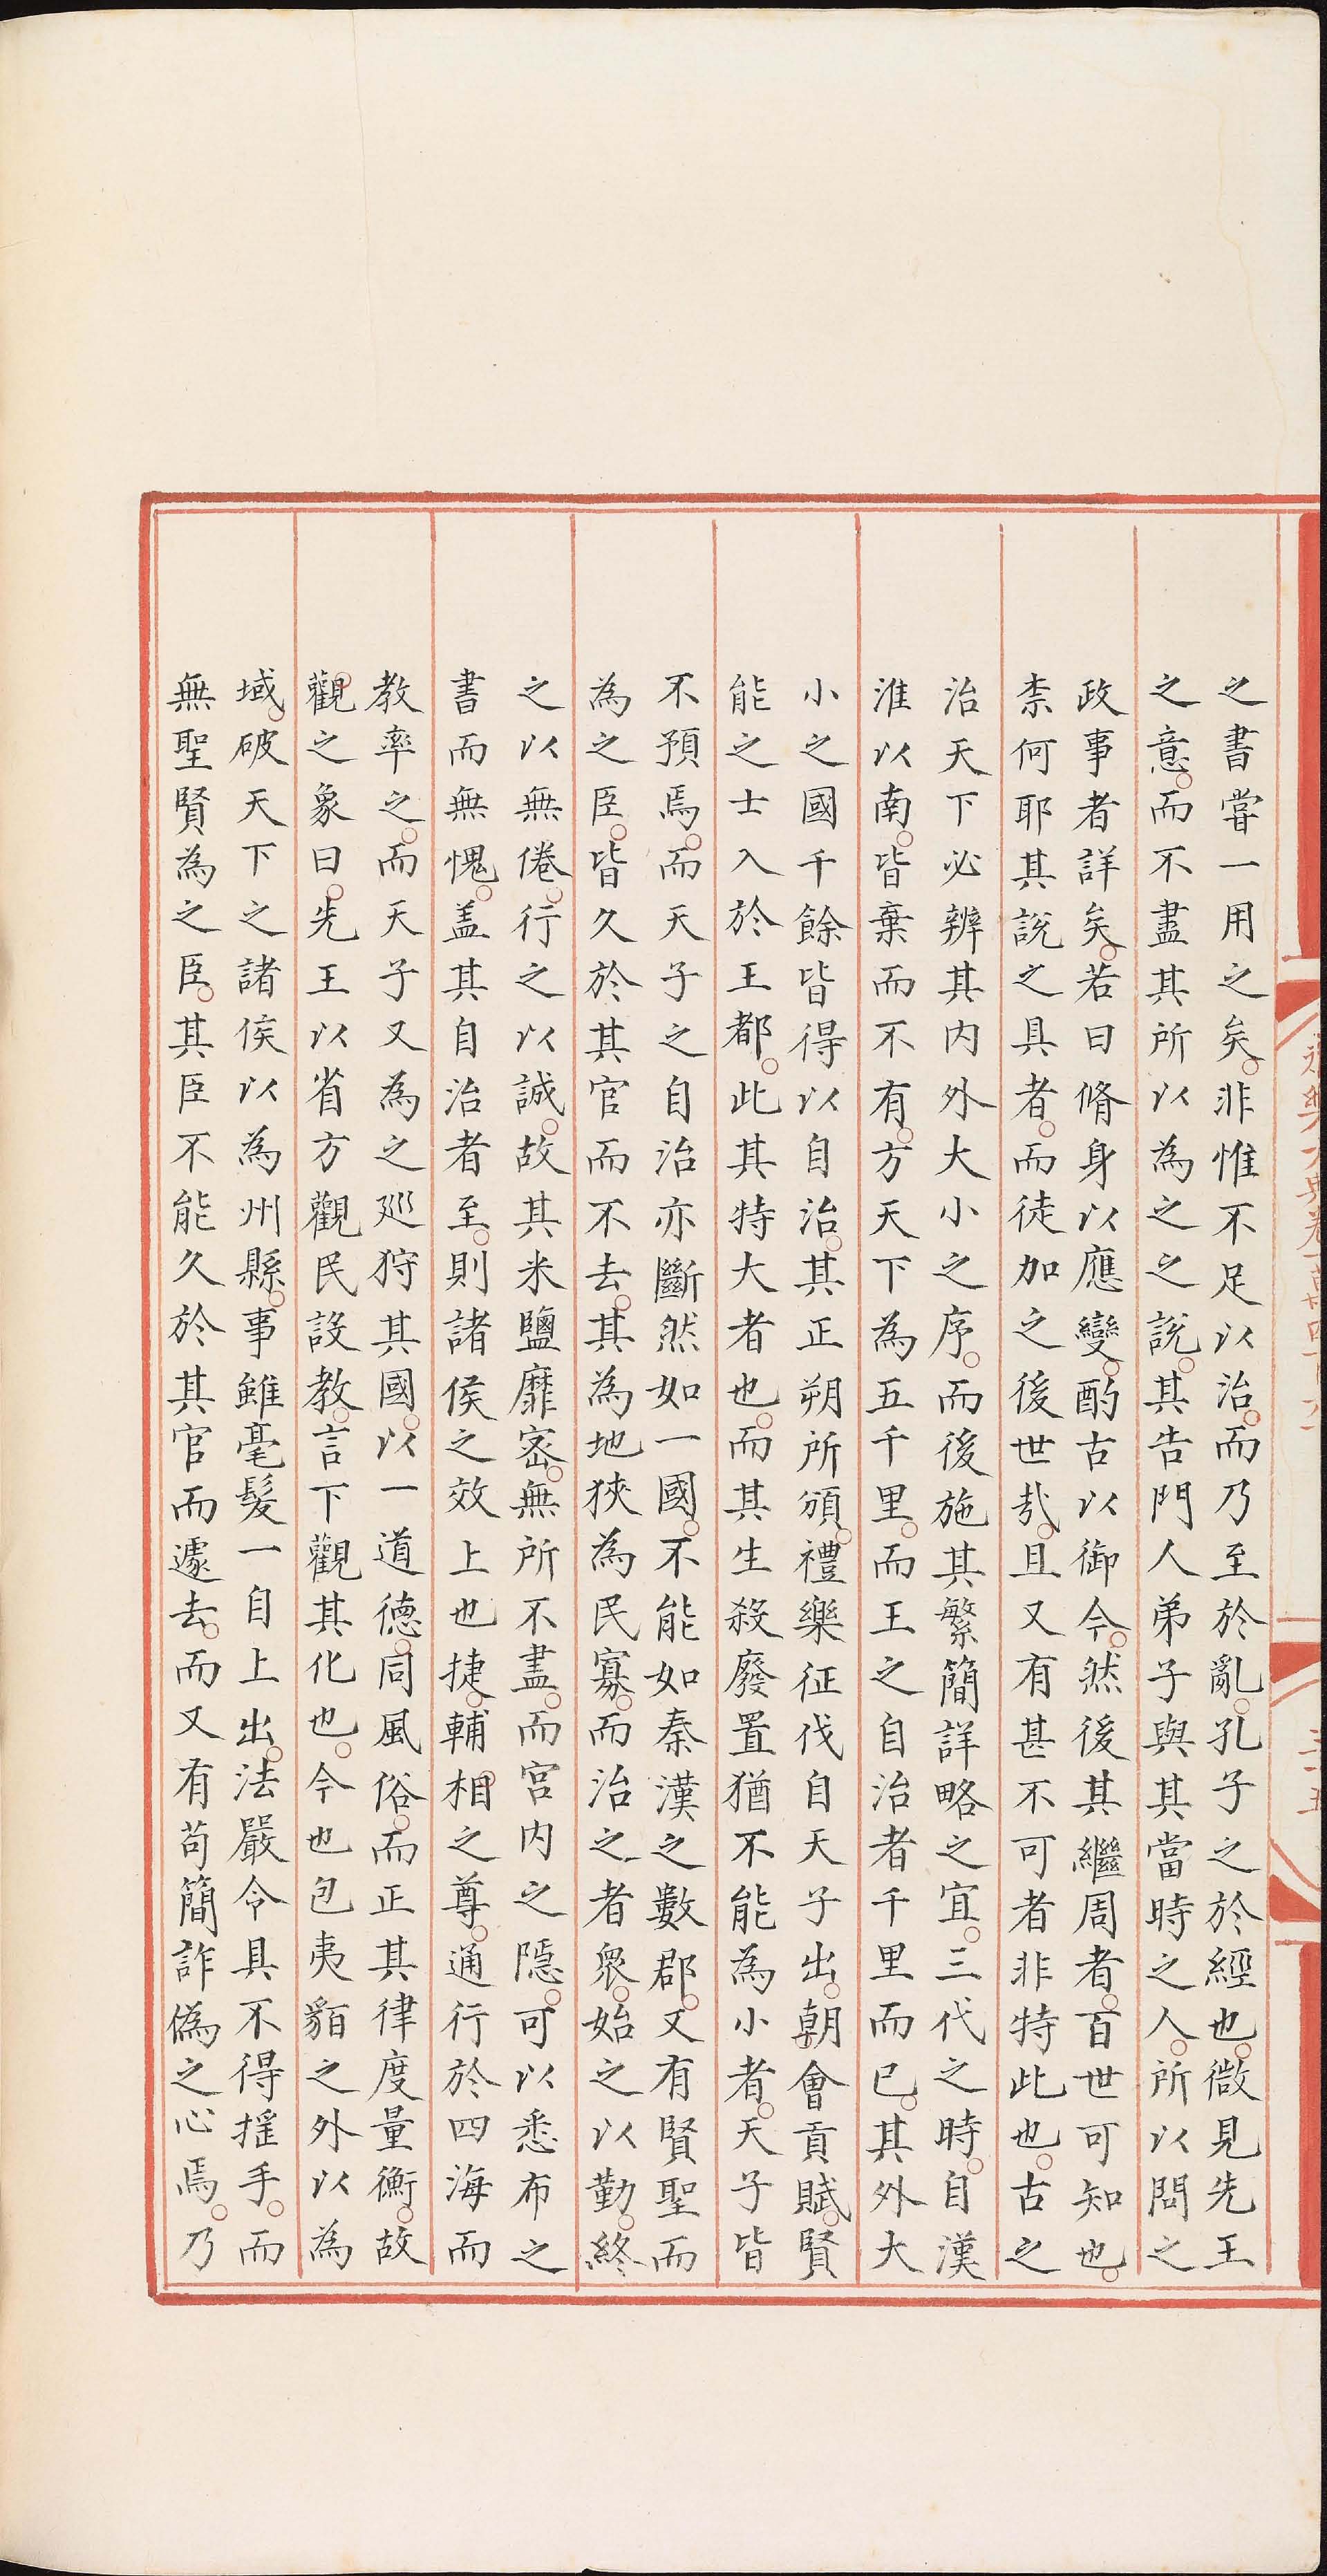 之書嘗一用之矣非惟不足以治而乃至於亂孔子之於經也微見先王
之意而不盡其所以為之之說其告門人弟子與其當時之人所以問之
政事者詳矣若曰脩身以應變酌古以御今然後其繼周者百世可知也
柰何耶其說之具者而徒加之後世哉且又有甚不可者非特此也古之
治天下必辨其內外大小之序而後施其繁簡詳略之宜三代之時自漢
淮以南皆棄而不有方天下為五千里而王之自治者千里而已其外大
小之國千餘皆得以自治其正朔所頒禮樂征伐自天子出朝會貢賦賢
能之士入於王都此其特大者也而其生殺廢置猶不能為小者天子皆
不預焉而天子之自治亦斷然如一國不能如秦漢之數郡又有賢聖而
為之臣皆久於其官而不去其為地狹為民寡而治之者衆始之以勤終
之以無倦行之以誠故其米鹽靡密無所不盡而宮內之隱可以悉布之
書而無愧盖其自治者至則諸侯之效上也捷輔相之尊通行於四海而
教率之而天子又為之廵狩其國以一道德同風俗而正其律度量衡故
觀之象曰先王以省方觀民設教言下觀其化也今也包夷貊之外以為
域破天下之諸侯以為州縣事雖毫髮一自上出法嚴令具不得搖手而
無聖賢為之臣其臣不能久於其官而遽去而又有苟簡詐偽之心焉乃